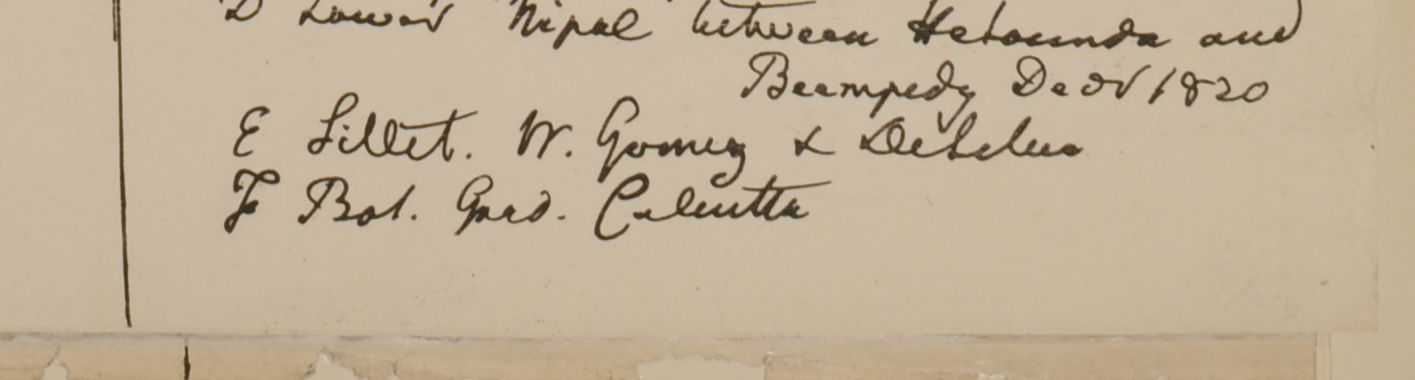 D Lower Nipal between Hetounda and
Beempedy Decr 1820
E Sillet. W. Gomez & DeSilva
F Bot. Gard. Calcutta